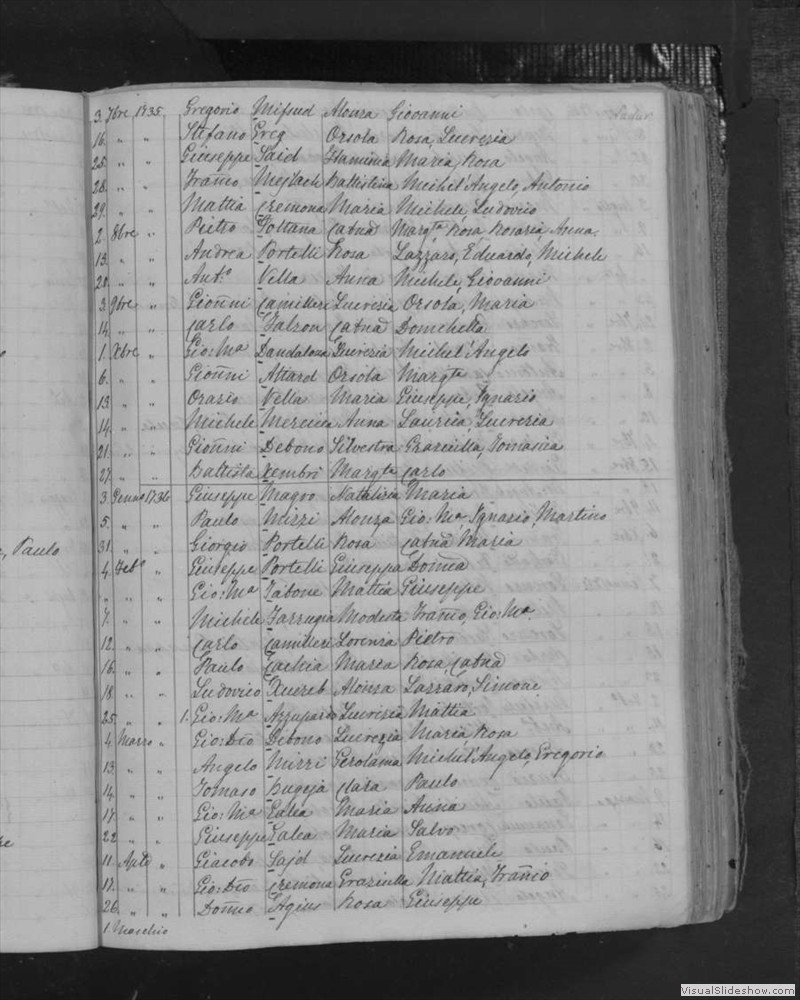 3. 7bre 1735. Gregorio Mifsud Alonza Giovanni
16. " " Stefano Greg Orsola Rosa, Lucrezia
25. " " Giuseppe Said Flaminia Maria, Rosa
28. " " Franco Mejlach Battistina Michel'Angelo, Antonio
29. " " Mattia Cremona Maria Michele, Ludovico
2. 8bre " Pietro Soltana Catna Margta Rosa, Rosaria, Anna.
13. " " Andrea Portelli Rosa Lazzaro, Eduardo, Michele
20. " " Anto Vella Anna Michele, Giovanni
3. 9bre " Gionni Camilleri Lucrezia Orsola, Maria
14. " " Carlo Falzon Catna Domchella
1. Xbre " Gio: Ma Dandalona Lucrezia Michel'Angelo
6. " " Gionni Attard Orsola Margta
13. " " Orazio Vella Maria Giuseppe, Ignazio
14. " " Michele Mercieca Anna Laurica, Lucrezia
21. " " Gionni Debono Silvestra Graziulla, Tomasica
27. " " Battista Xembri Margta Carlo
3. Genno 1736 Giuseppe Magro Natalizia Maria
5. " " Paulo Mizzi Alonza Gio: Ma Ignazio Martino
31. " " Giorgio Portelli Rosa Catna Maria
, Paulo
4. Febo " Giuseppe Portelli Giuseppa Donna
" " " Gio: Ma Tabone Mattia Giuseppe
7. " " Michele Farrugia Modesta Franco, Gio: Ma
12. " " Carlo Camilleri Lorenza Pietro
16. " " Paulo Zachia Marea Rosa, Catna
18. " " Ludovico Xuereb Alonza Lazzaro, Simone
25. " " 1. Gio: Ma Azzupardo Lucrezia Mattia
4. Marzo " Gio: Dto Debono Lucrezia Maria Rosa
13. " " Angelo Mizzi Gerolama Michel'Angelo, Gregorio
14. " " Tomaso Bugeja Clara Paulo
17. " " Gio: Ma Galea Maria Anna
22. " " Giuseppe Galea Maria Salvo
11. Aple " Giacobo Sajd Lucrezia Emanuele
17. " " Gio: Dto Cremona Graziulla Mattia, Franco
26. " " Domco Agius Rosa Giuseppe
1. Maschio
VisualSlideshow.com